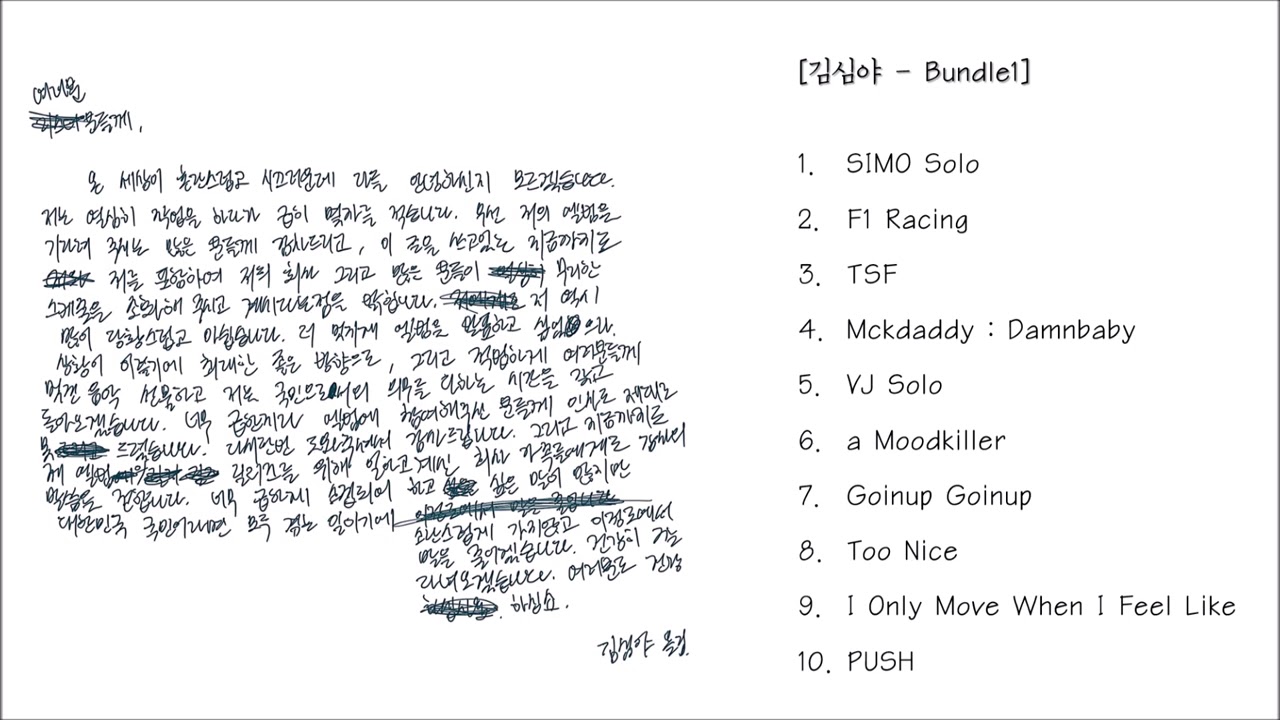 여러분
분들께,
온 세상이 혼란스럽고 시끄러운데 다들 안녕하신지 모르겠습니다.
저는 열심히 작업을 하다가 급히 몇자를 적습니다. 우선 저의 앨범을
기다려 주시는 많은 분들께 감사드리고, 이 글을 쓰고있는 지금까지도
저를 포함하여 저희 회사 그리고 많은 분들이 무리한
스케줄을 소화해 주시고 계시다는점을 밝힙니다. 저 역시
많이 당황스럽고 아쉽습니다. 더 멋지게 앨범을 발표하고 싶었으나.
상황이 이렇기에 최대한 좋은 방향으로, 그리고 적법하게 여러분들께
멋진 음악 선물하고 저는 국민으로서의 의무를 다하는 시간을 갖고
돌아오겠습니다. 너무 급한지라 앨범에 참여해주신 분들께 인사도 제대로
못 드렸습니다. 다시한번 도와주셔서 감사드립니다. 그리고 지금까지도
제 앨범 릴리즈를 위해 일하고계신 회사 가족들에게도 감사의
말씀을 전합니다. 너무 급하게 소집되어 하고 싶은 말이 많지만
대한민국 국민이라면 모두 겪는 일이기에
소란스럽게 가지않고 이정도에서
말을 줄이겠습니다. 건강히 잘
다녀오겠습니다. 여러분도 건강
하십쇼.
김심야 올림.
[김심야 - Bundle1]
1. SIMO Solo
2. F1 Racing
3. TSF
4. Mckdaddy : Damnbaby
5. VJ Solo
6. a Moodkiller
7. Goinup Goinup
8. Too Nice
9. I Only Move When I Feel Like
10. PUSH